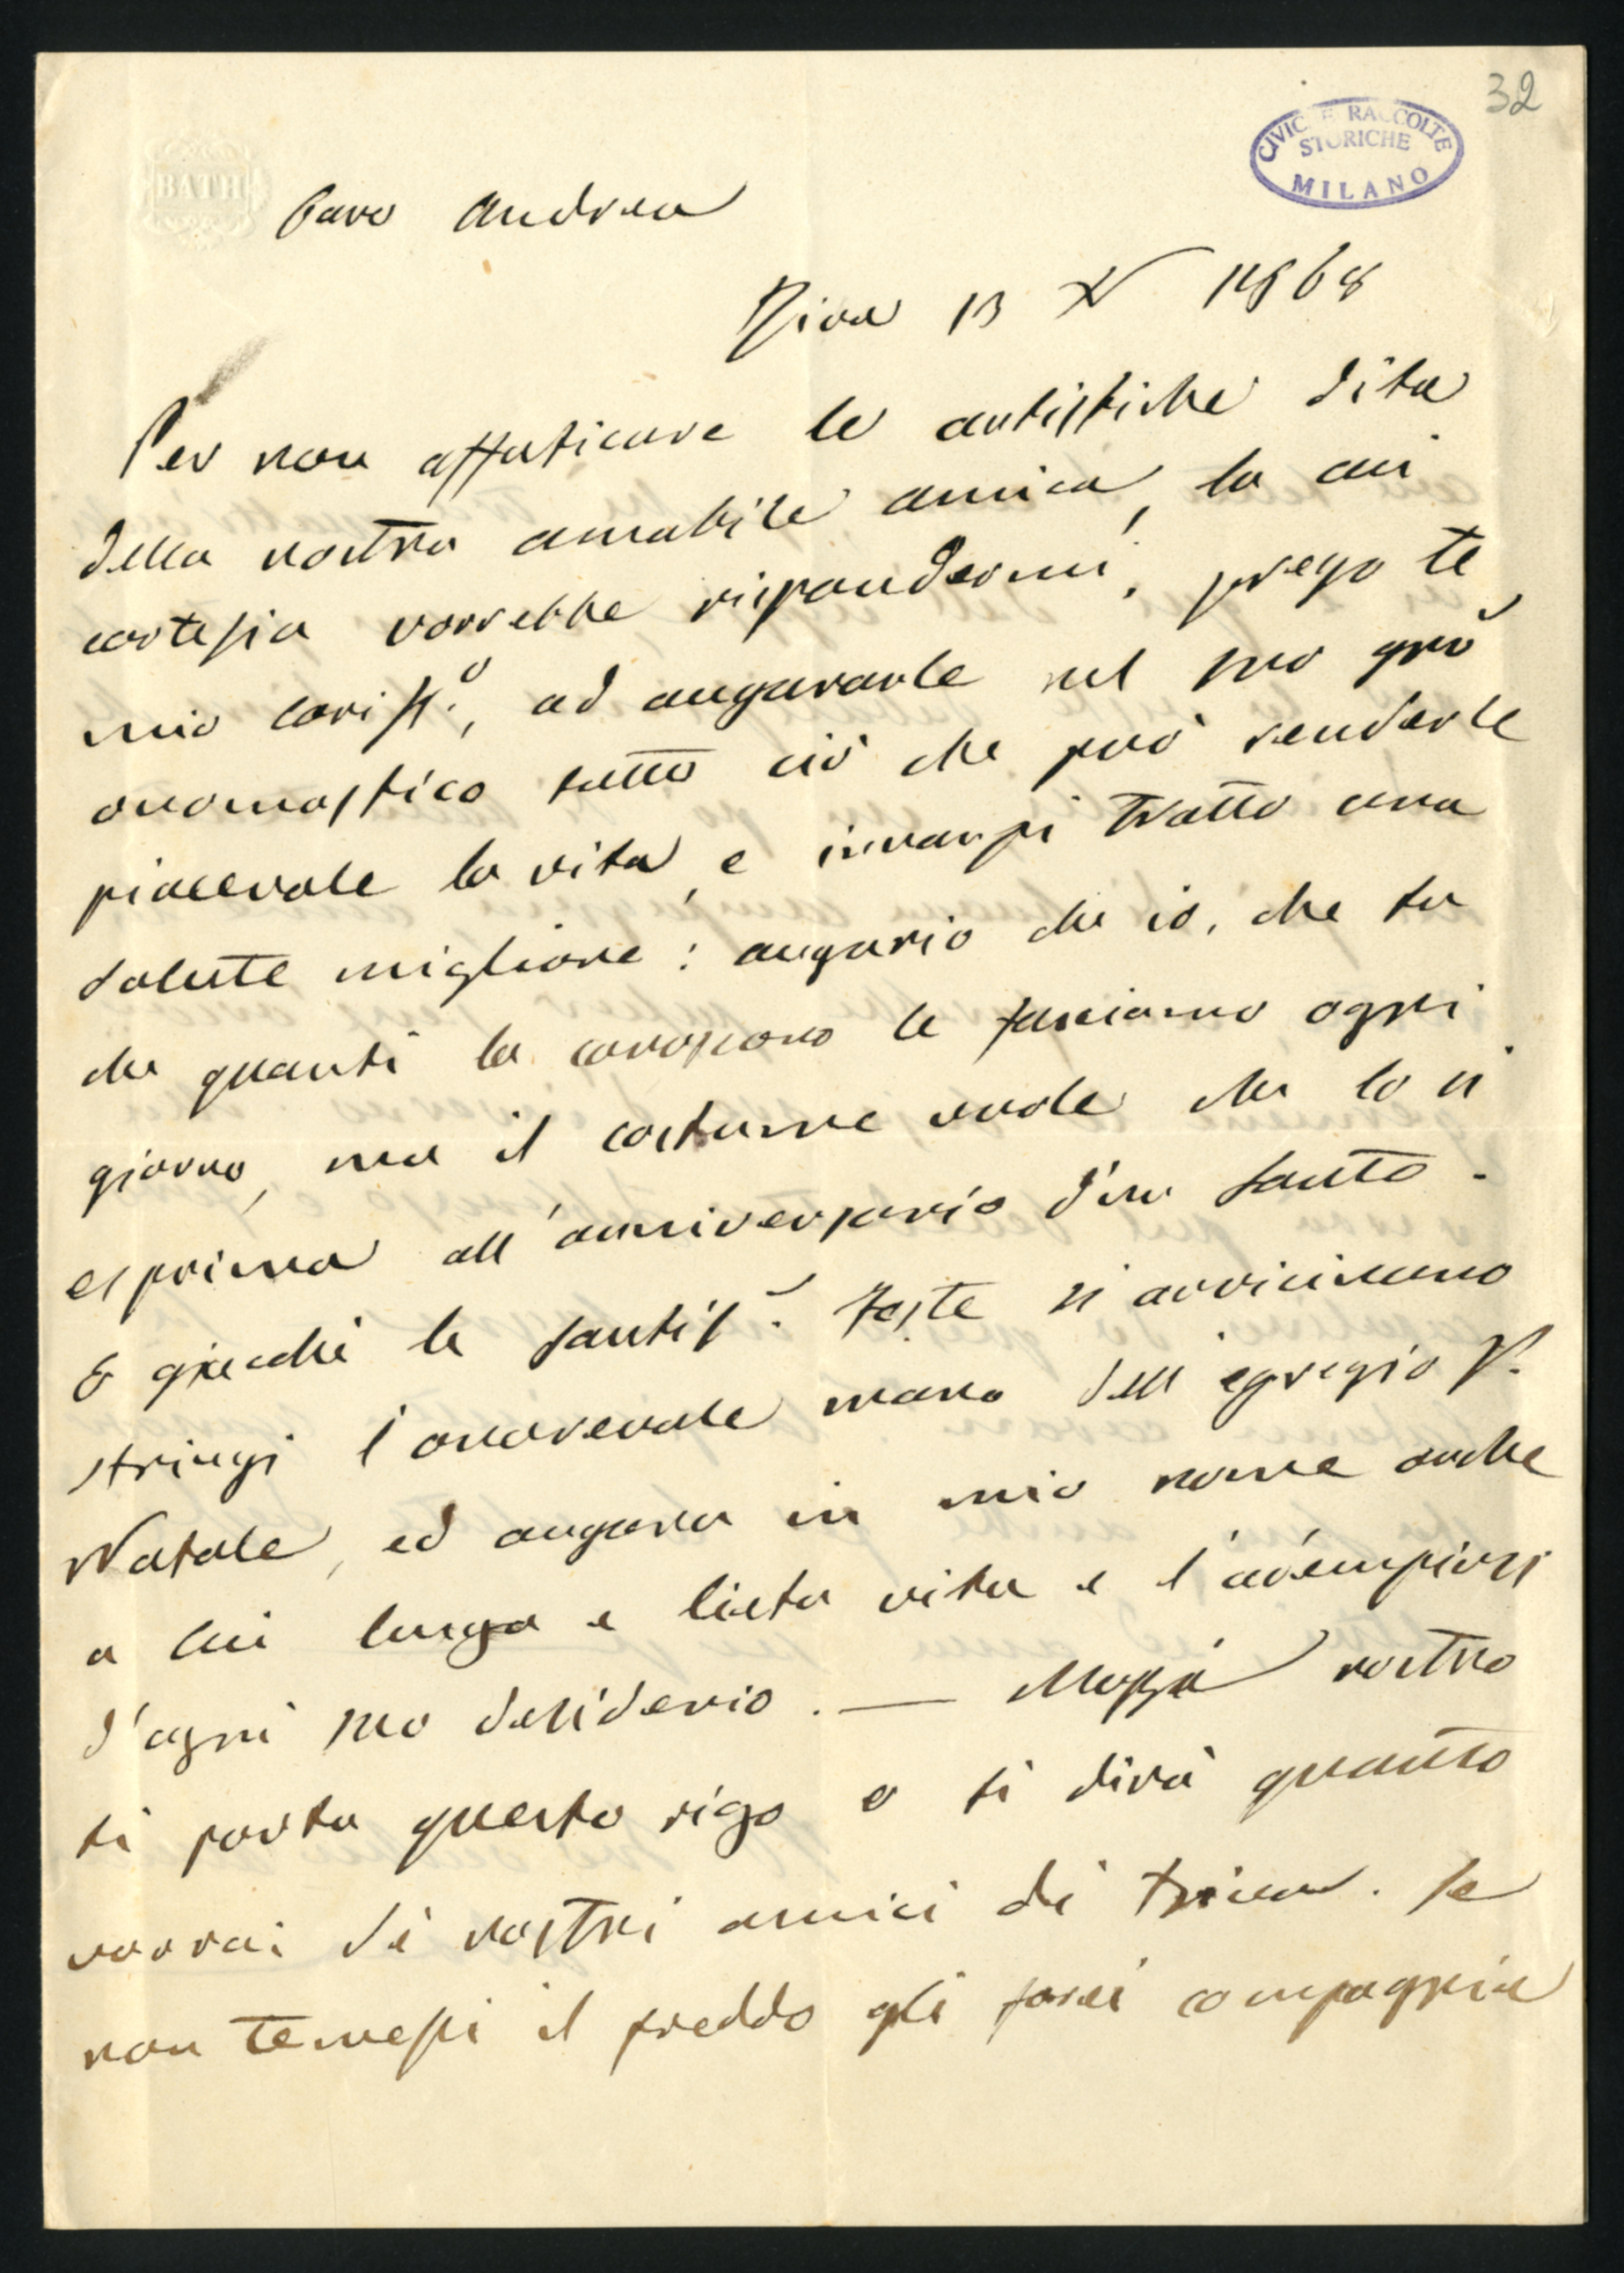 32
CIVICHE RACCOLTE
STORICHE
MILANO
BATH
Caro Andrea
Riva 13 X 1868
Per non affaticare le artistiche dita
della nostra amabile amica, la cui
cortesia vorrebbe rispondermi, prego te
mio cariss.o, ad augurarle nel suo
onomastico tutto ciò che può renderle
piacevole la vita, e innanzi tratto una
salute migliore: augurio che io, che tu
che quanti la conoscono le facciamo ogni
giorno, ma il costume vuole che lo si
esprima all'anniversario d'un santo.
E giacchè le santiss. feste si avvicinano
stringi l'onorevole mano dell'egregio P.
Natale, ed augura in mio nome anche
a lui lunga e lieta vita e l'adempiersi
d'ogni suo desiderio. — nostro
ti porta questo rigo e ti dirà quanto
vorrai di nostri amici di . Se
non temessi il freddo gli farei compagnia